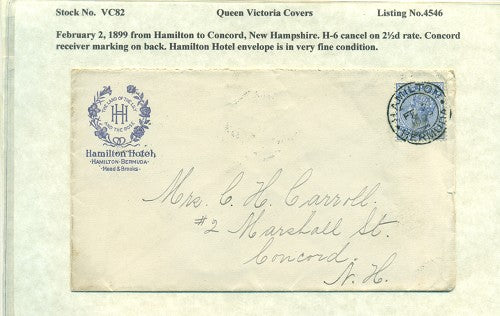 Stock No. VC82 Queen Victoria Covers Listing No.4546
February 2, 1899 from Hamilton to Concord, New Hampshire. H-6 cancel on 2½d rate. Concord
receiver marking on back. Hamilton Hotel envelope is in very fine condition.
THE LAND OF THE LILY
HH
AND THE ROSE
Hamilton Hotel,
HAMILTON-BERMUDA-
Mead & Brooks-
HAMILTON
BERMUDA
Mrs. C. H. Carroll.
#2 Marshall St.
Concord.
N. H.